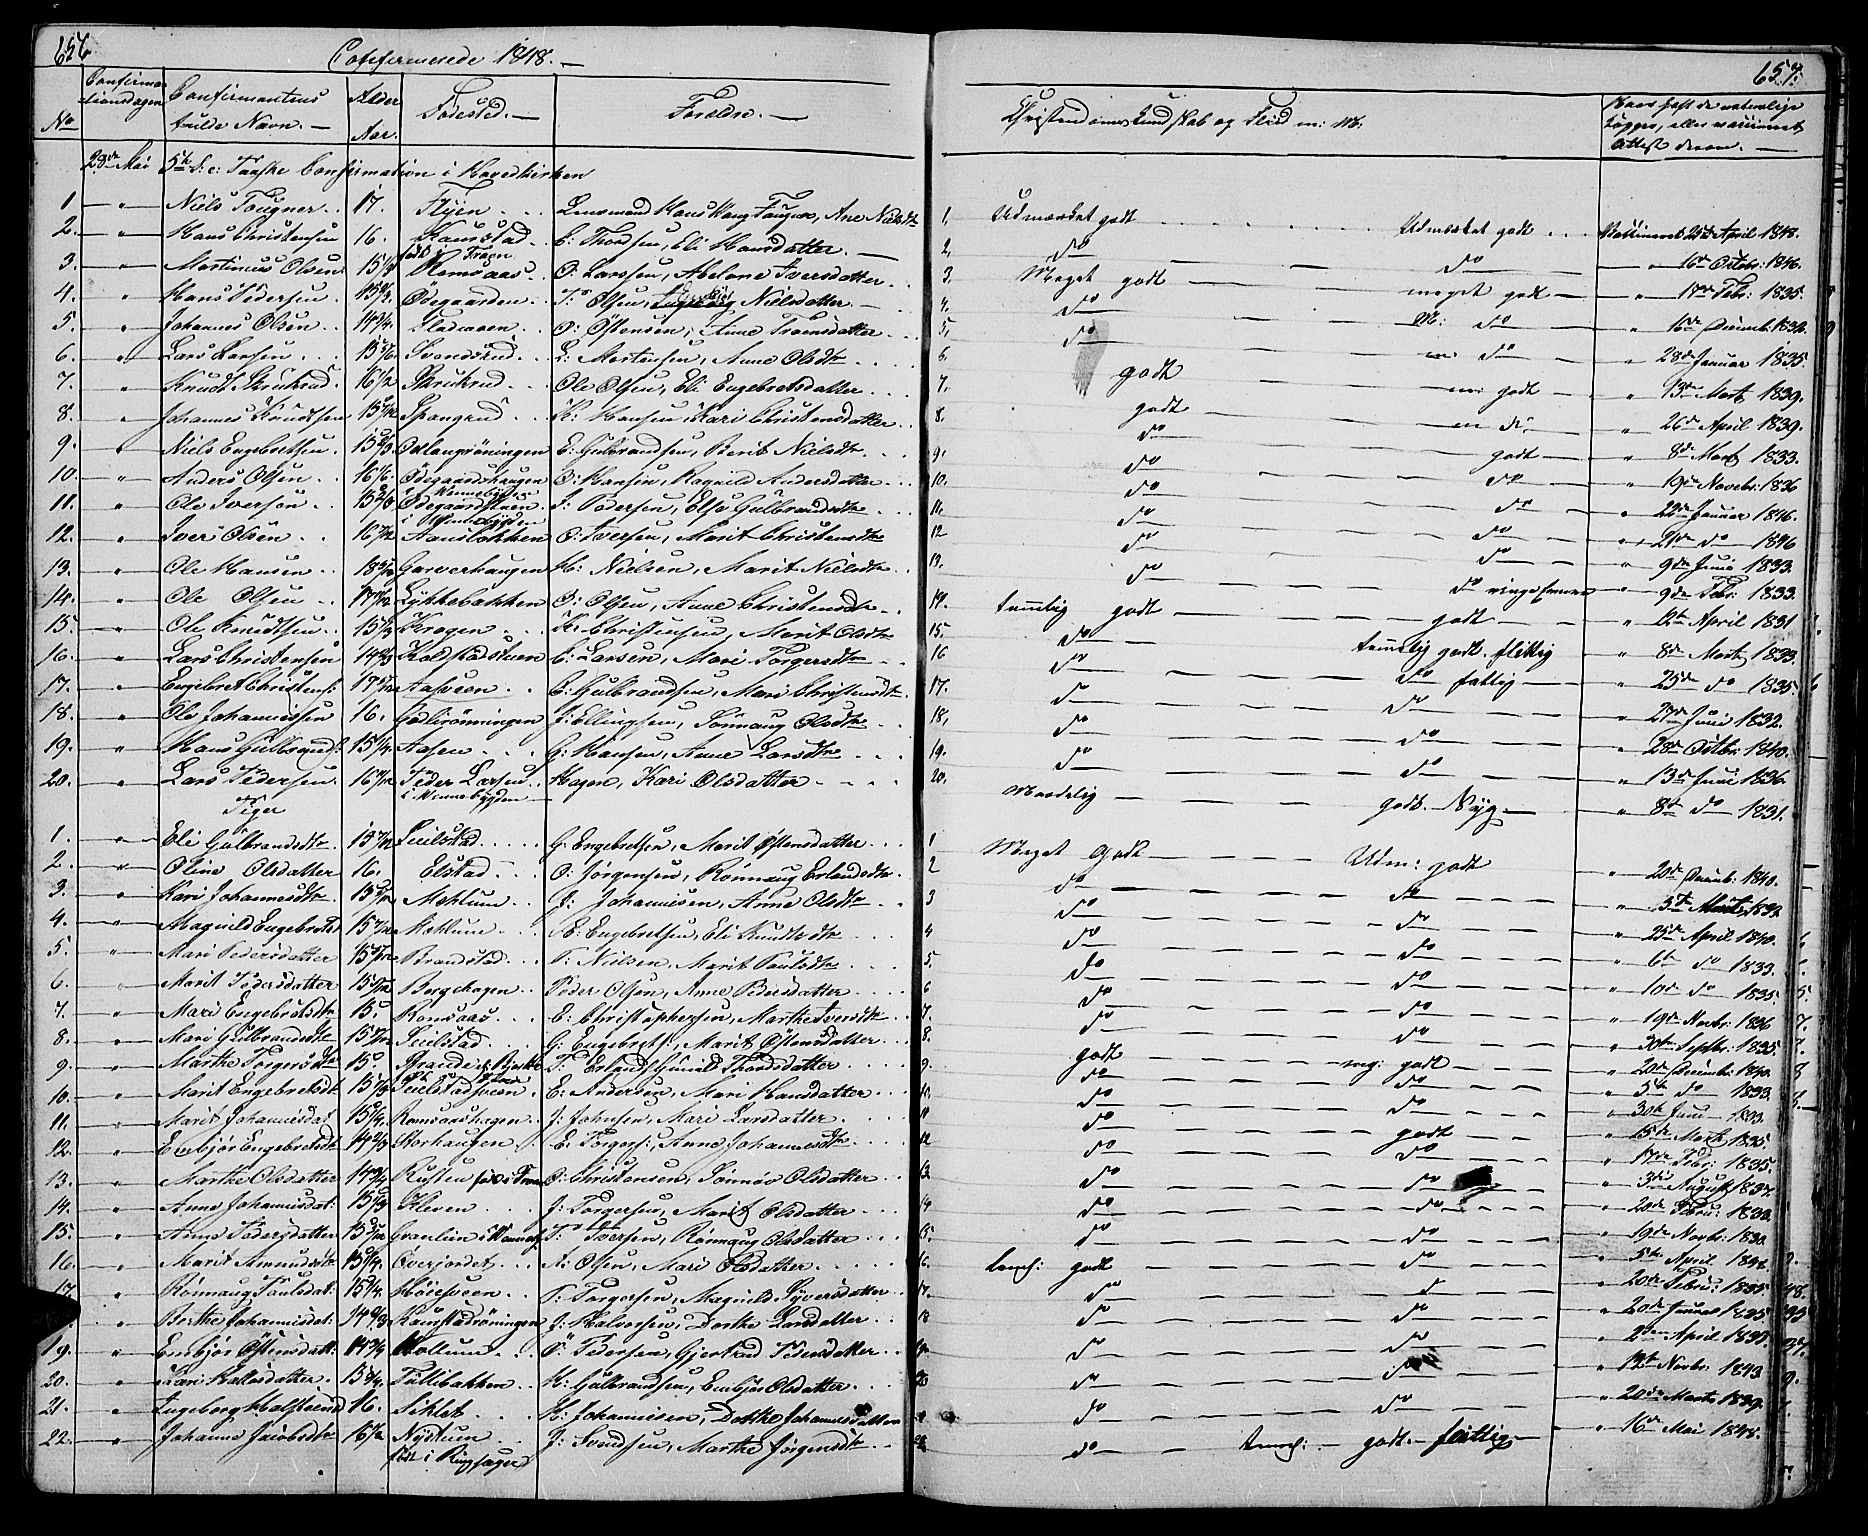 656
Confirmerede 1848.
No
Confirma-
tionsdagen
Confirmantens
fulde Navn.
Alder
Aar.
Fødested.
Foreldre.
28de Mai 5te S: e: Paaske Confirmation i Hovedkirken
1. " Niels Fougner 17. Flyen Lensmand Hans Haag Fougner, Ane Nielsdtr
2. " Hans Christensen 16. Kaurstad C: Thordsen, Eli Hansdatter
3. " Martinus Olsen 15 1/3 født i Fron Romsaas O: Larsen, Abelone Iversdatter
4. " Hans Pedersen 15 2/3 Ødegaarden P: Olsen, Nielsdatter
5. " Johannes Olsen 14 3/4 Fladmoen O: Østensen, Anne Framsdatter
6. " Lars Larsen 15 5/6 Svendsrud L: Mortensen, Anne Olsdtr
7. " Knud Skrukrud 16 1/2 Skrukrud Ole Olsen, Eli Engebretsdatter
8. " Johannes Knudtsen Spangrud K: Hansen, Kari Christensdatter
9. " Niels Engebretsen 15 2/3 E: Gulbrandsen, Berit Nielsdtr
10. " Anders Olsen 16 1/6 Ødegaardshaugen O: Hansen, Ragnild Andersdatter
11. " Ole Iversen 15 2/3 i Vinnebygden Ødegaardstuen I: Pedersen, Else Gulbrandsdtr
12. " Iver Olsen 16 7/12 i Vinnebygden Aansløkken O: Iversen, Marit Christensdtr
13. " Ole Hansen Garverhaugen H: Nielsen, Marit Nielsdtr
14. " Ole Olsen Lykkebakken O: Olsen, Anne Christensdtr
15. " Ole Knudtsen 15 1/2 Krogen K: Christensen, Marit Olsdtr
16. " Lars Christensen 14 2/3 Koldstadstuen C: Larsen, Mari Torgersdtr
17. " Engebret Christens: Aasveen C: Gulbrandsen, Mari Christensdtr
18. " Ole Johannessen 16. J: Ellingsen, Rønnaug Olsdtr
19. " Hans Gulbrands: 15 1/4 Aasen G: Hansen, Anne Larsdtr
20. " Lars Pedersen 16 7/12 Peder Larsen Hagen, Kari Olsdatter
i Vinnebygden
Piger
1. " Eli Gulbrandsdtr 15 7/12 Seielstad G: Engebretsen, Marit Østensdatter
2. " Oline Olsdatter 16. Elstad O: Jørgensen, Rønnaug Erlandsdtr
3. " Kari Johannesdtr Mæhlum J: Johannesen, Anne Olsdtr
4. " Magnild Engebretsd: 15 7/12 Mæhlum E: Engebretsen, Eli Knudtsdtr
5. " Mari Pedersdatter Brandstad P: Nielsen, Marit Paulsdtr
6. " Marit Pedersdatter Borgehagen Peder Olsen, Anne Pedersdatter
7. " Mari Engebretsdtr 15. Romsaas E: Christophersen, Marthe Iversdtr
8. " Mari Gulbrandsdtr 15 7/12 Seielstad G: Engebrets:, Marit Østensdatter
9. " Marthe Torgersdtr 15 T: Erlands:, Gunild Thordsdatter
10. " Marit Engebretsdtr Seielstadsveen E: Andersen, Mari Hansdatter
11. " Marit Johannesdat: 15 1/4 Romsaashagen J: Johnsen, Mari Larsdatter
12. " Embjør Engebretsdtr 14 2/3 Storhaugen E: Torgers:, Anne Johannesdtr
13. " Marthe Olsdatter 14 3/4 Rusten født i Fron O: Christensen, Rønnøv Olsdatter
14. " Anne Johannesdat: 15 2/3 Kleven J: Torgersen, Marit Olsdatter
15. " Anne Pedersdatter Granlien P: Iversen, Rønnaug Olsdatter
16. " Marit Amundsdtr 15 1/4 Øverjordet A: Olsen, Mari Olsdatter
17. " Rønnaug Paulsdat: 15 1/4 Høiesveen P: Torgersen, Magnild Syversdatter
" Berthe Johannesdat: 14 2/3 Kaurstadrøningen J: Halvorsen, Dorthe Larsdatter
19. " Embjør Østensdatt: 14 3/4 Mollum Ø: Pedersen, Gjertrud Pedersdatter
20. " Kari Pallesdatter 15 3/4 Tullibakken H: Gulbrandsen, Embjør Olsdatter
21. " Ingeborg Halsteensd 16. Siklet H: Johannesen, Dorthe Johannesdatter
22. " Johanne Jacobsdtr 16 1/2 Nystuen J: Svendsen, Marthe Jørgensdtr
født i Ringsager
657.
Christendoms Kundskab og Flid m: M:
Have haft de naturlige
Kopper, eller vaccineret
Attest derom.
1. Udmærket godt Udmærket godt Vaccineret 25de April 1848.
2. do do " 16de Octobr: 1846.
3. Meget godt meget godt " 17de Febr: 1835.
4. do M: do " 16de Decemb: 1832
5. do m: do " 28de Januar 1835.
6. godt m: godt " 13de Marts 1839.
7. godt m do " 26de April 1839.
8. do godt " 8de Marts 1833.
9. do do " 19de Novebr: 1836
10. do do " 22de Januar 1846.
11. do do " 21de do 1846
12 do do " 9de Juni 1833.
13. do do ringe Evner " 9de Febr: 1833.
14. temmelig godt godt " 12te April 1831
15. do temmelig godt. flittig " 8de Marts 1833.
16 do do fattig " 25de do 1835
17. do do " 27de Juni 1832.
18. do do " 28de Octbr: 1840.
19. do do " 13de Juni 1836.
20. Maadelig godt. Nyg " 8de do 1831.
1 Meget Godt Udm: godt " 20de Decemb: 1840.
2 do do " 5te Marts 1832
3 do do " 25de April 1840.
4 do do " 6te do 1833.
5. do do " 10de do 1835
6 do do " 19de Novbr: 1836
7. do do " 30te Septbr: 1835.
8. godt mg: godt " 20de Decemb: 1840.
9. do do " 5te do 1833.
10. do do " 30te Juni 1833.
11 do godt " 15de Marts 1835
12 do do " 17de Febr: 1835.
13. do do " 3die August 1837.
14 do do " 20de Febru: 1833.
15. do do " 19de Novbr: 1830.
16. temel: godt do " 5te April 1842.
17. do d " 20de Febru: 1835.
18 do do " 20de Januar 1835
19. do do " 2den April 1835.
20 do do " 12te Novbr: 1843
21 do do " 20de Marts 1839.
22 do temel: godt. fattig " 16de Mai 1848.